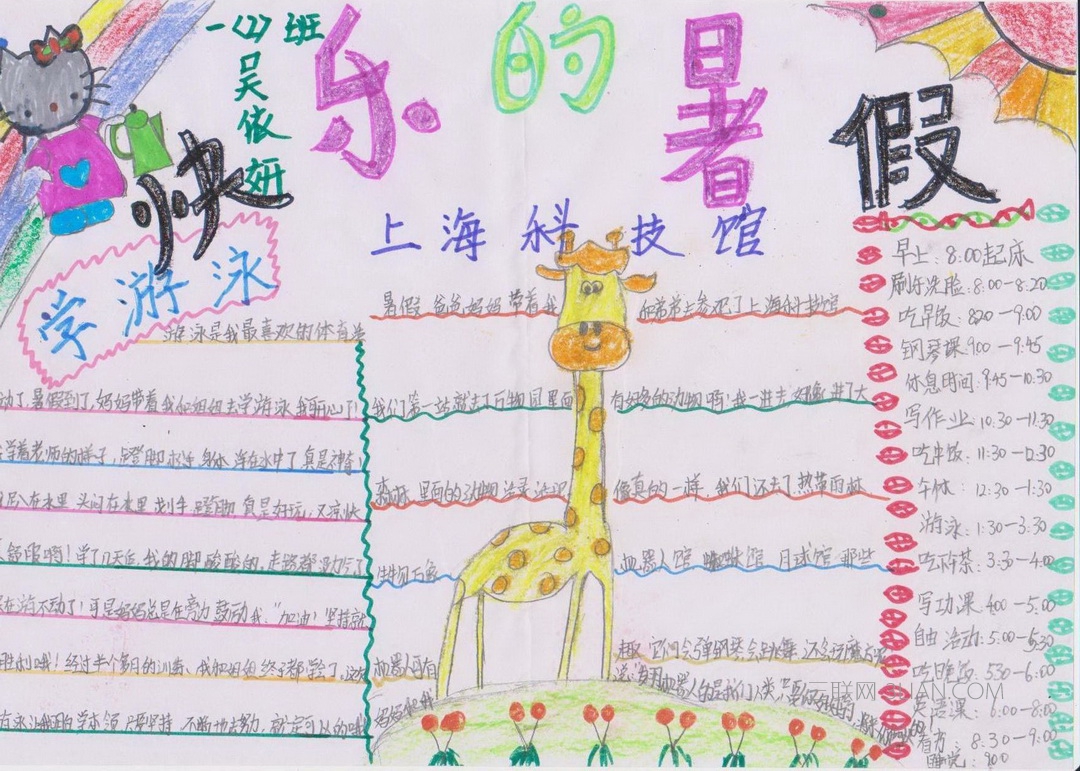 一(2)班
吴依妍
快乐的暑假
学游泳
游泳是我最喜欢的体育运
动了,暑假到了,妈妈带着我和姐姐去学游泳,我开心了!
学着老师的样子,蹬脚 身体浮在水中了,真是神奇!
趴在水里,头闷在水里,划手,蹬脚,真是好玩,又凉快
舒服啊!学了几天后,我的脚酸酸的,走路都没力气了
在游不动了!可是妈妈总是在旁边鼓励我:“加油!坚持就
胜利哦!经过半个多月的训练,我和姐姐终于都学会了,
学本领只要坚持,不断地去努力,就一定可以的哦
上海科技馆
暑假,爸爸妈妈带着我和弟弟去参观了上海科技馆
我们第一站就去了万物园,里面有好多的动物啊!我一进去好像进了大
森林,里面的动物 像真的一样,我们还去了热带雨林
生物万象 机器人馆、蜘蛛馆、月球馆,那些
机器人可有趣,它们会弹钢琴,会跳舞,还会玩魔方呢
妈妈和我说,发明机器人的是我们人类,
早上:8:00起床
刷牙洗脸:8:00-8:20
吃早饭:820-9:00
钢琴课:900-9:45
休息时间:9:45-10.30
写作业:10.30-11.30
吃午饭:11:30-12:30
午休:12:30-1:30
游泳:1:30-3.30
吃下午茶:3:30-4:00
写功课:400-5.00
自由活动:5:00-5:30
吃晚饭:530-6:00
英语课:6:00-8:00
看书:8:30-9:00
睡觉:900
三联网 3LIAN.COM